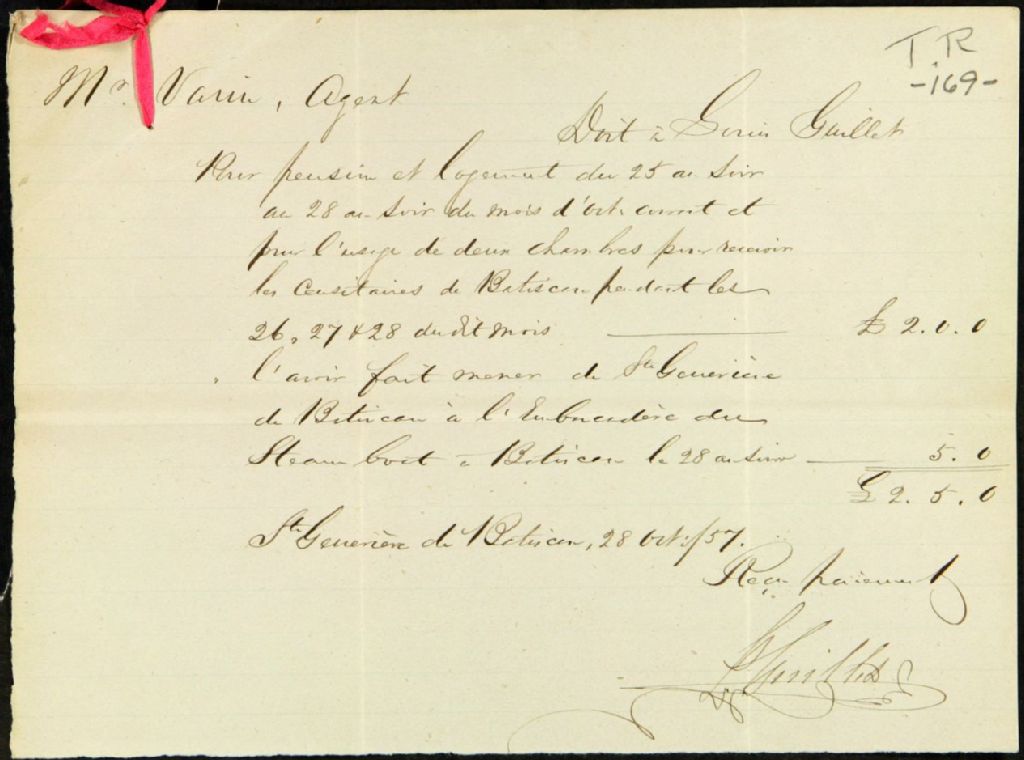 T.R
-169-
Mr. Varin, Agent
Doit à Louis Guillet
Pour pension et logement du 25 au soir
au 28 au soir du mois d'Octe. courant et
pour l'usage de deux chambres pour recevoir
les Censitaires de Batiscan pendant les
26, 27 & 28 du dit mois £ 2. 0. 0
l'avoir fait mener de Ste Geneviève
de Batiscan à l'Embarcadère du
Steam boat à Batiscan le 28 au soir 5. 0
£ 2. 5. 0
Ste Geneviève de Batiscan, 28 Oct: /57.
Reçu paiement
L Guillet